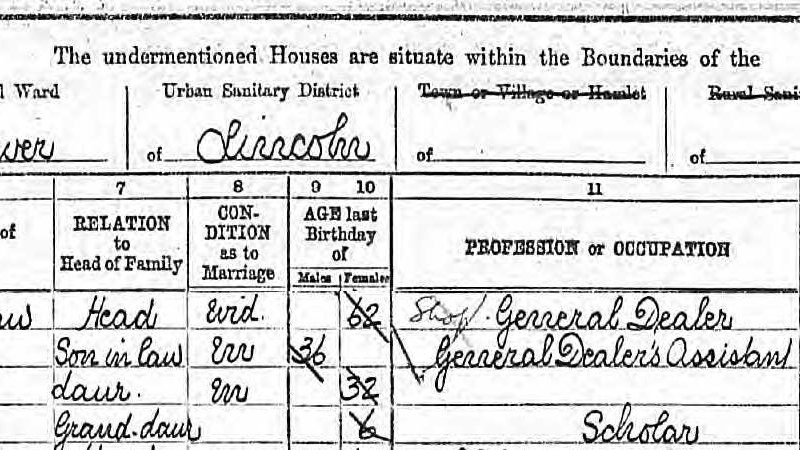 The undermentioned Houses are situate within the Boundaries of the
Ward Urban Sanitary District Town or Village or Hamlet Rural
of Lincoln of of
7 8 9 10 11
of RELATION to Head of Family CON-DITION as to Marriage AGE last Birthday of Males Females PROFESSION or OCCUPATION
Head Wid. 62 Shop. General Dealer
Son in law M 36 General Dealer's Assistant
daur. M 32
Grand-daur 6 Scholar